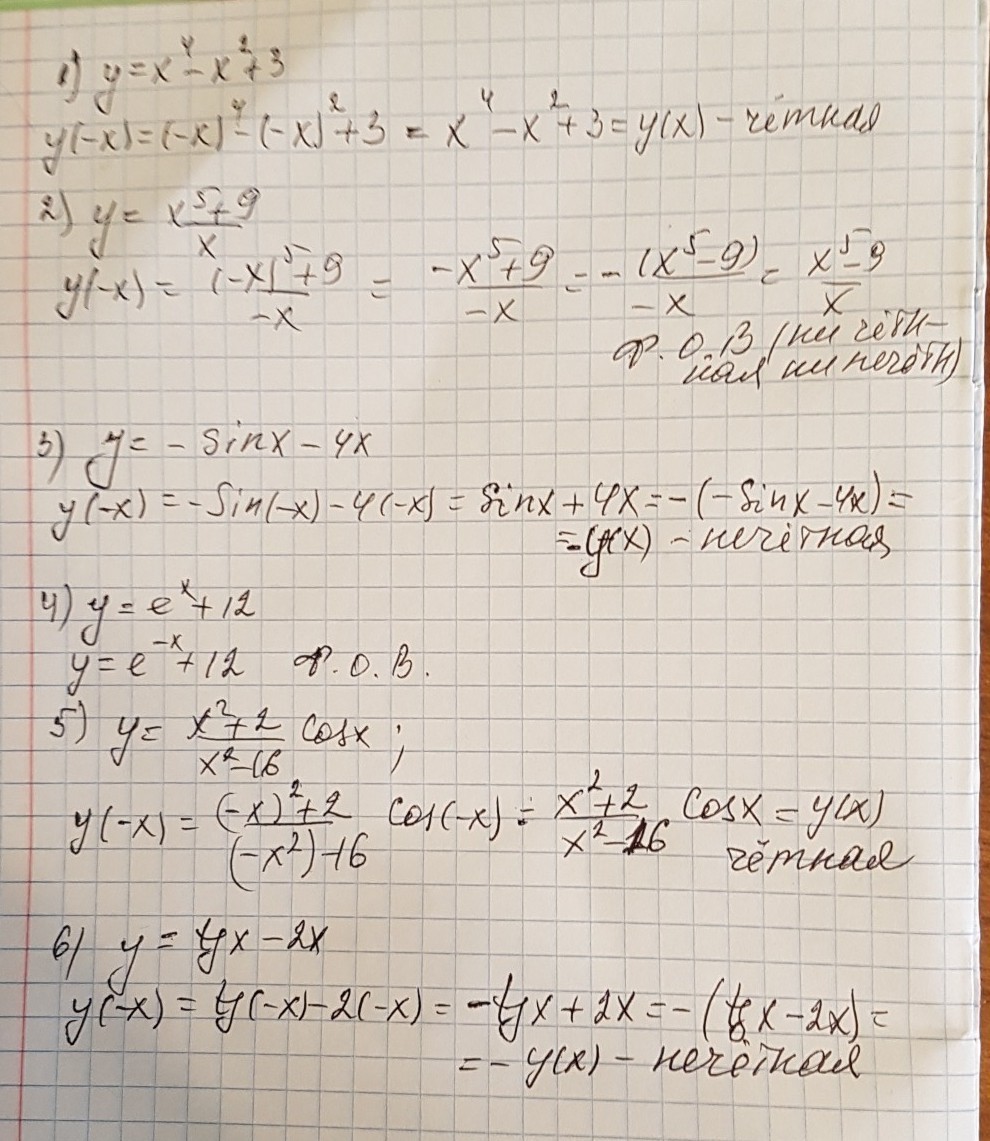 1) y = x⁴ - x² + 3
y(-x) = (-x)⁴ - (-x)² + 3 = x⁴ - x² + 3 = y(x) - чётная
2) y = (x⁵ + 9)/x
y(-x) = ((-x)⁵ + 9)/(-x) = (-x⁵ + 9)/(-x) = -(x⁵ - 9)/(-x) = (x⁵ - 9)/x
ф. О. В (ни чётн-
ная ни нечётн)
3) y = - sinx - 4x
y(-x) = -sin(-x) - 4(-x) = sinx + 4x = -(-sinx - 4x) =
= -y(x) - нечётная
4) y = eˣ + 12
y = e⁻ˣ + 12 ф. О. В.
5) y = (x² + 2)/(x² - 16) cosx ;
y(-x) = ((-x)² + 2)/((-x²) - 16) cos(-x) = (x² + 2)/(x² - 16) cosx = y(x)
чётная
6) y = tgx - 2x
y(-x) = tg(-x) - 2(-x) = -tgx + 2x = -(tgx - 2x) =
= - y(x) - нечётная